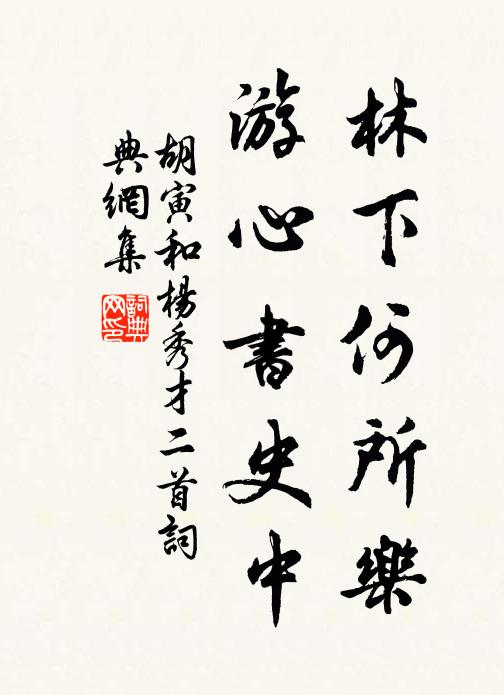 林下何所樂
游心書史中
胡寅和楊秀才二首詞
典網集
詞典網印